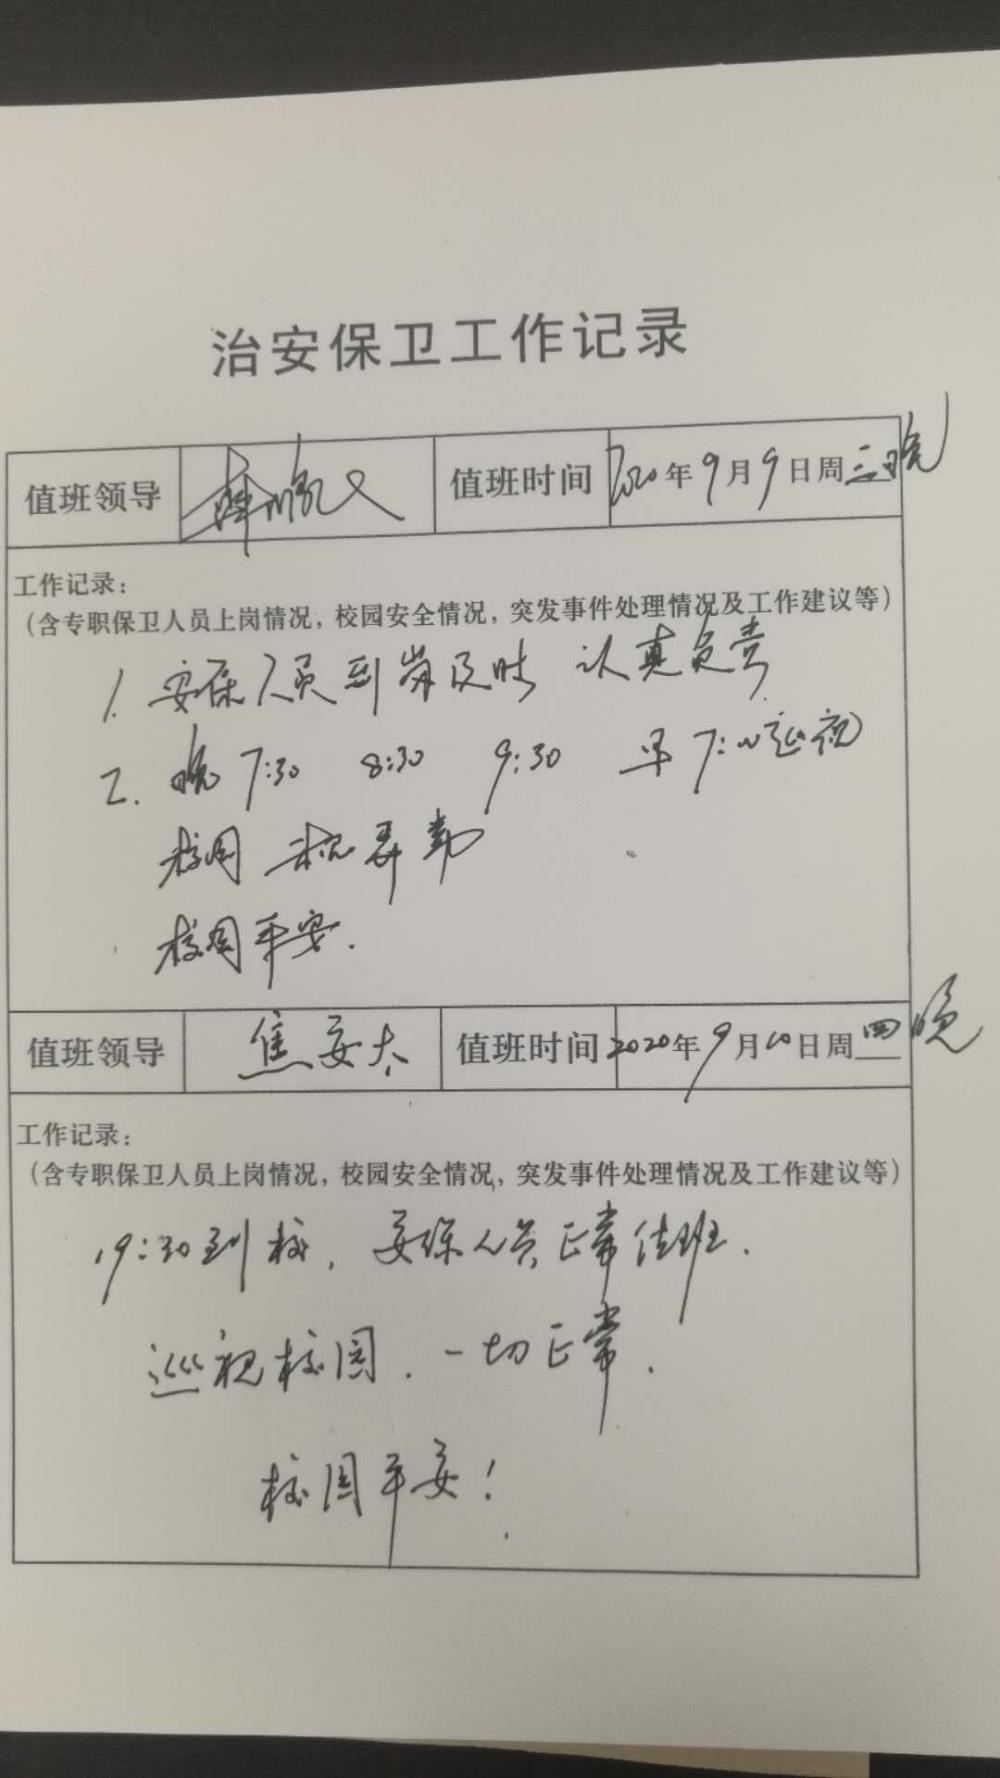 治安保卫工作记录
值班领导 值班时间 2020年9月9日周三晚
工作记录：
（含专职保卫人员上岗情况，校园安全情况，突发事件处理情况及工作建议等）
1. 安保人员到岗及时 认真负责
2. 晚7:30 8:30 9:30 早7:00巡视
校园
校园平安.
值班领导 焦安大 值班时间 2020年9月10日周四晚
工作记录：
（含专职保卫人员上岗情况，校园安全情况，突发事件处理情况及工作建议等）
19:30到校，安保人员正常值班.
巡视校园.一切正常.
校园平安！